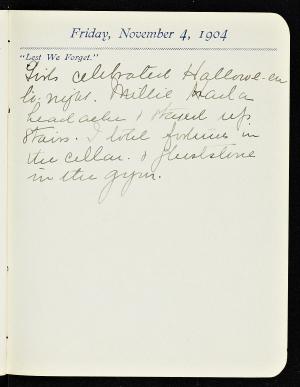 Friday, November 4, 1904
"Lest We Forget."
Girls celebrated Hallowe-en
to night. Millie had a
headache & stayed up
stairs. I told fortunes in
the cellar. &
in the gym.